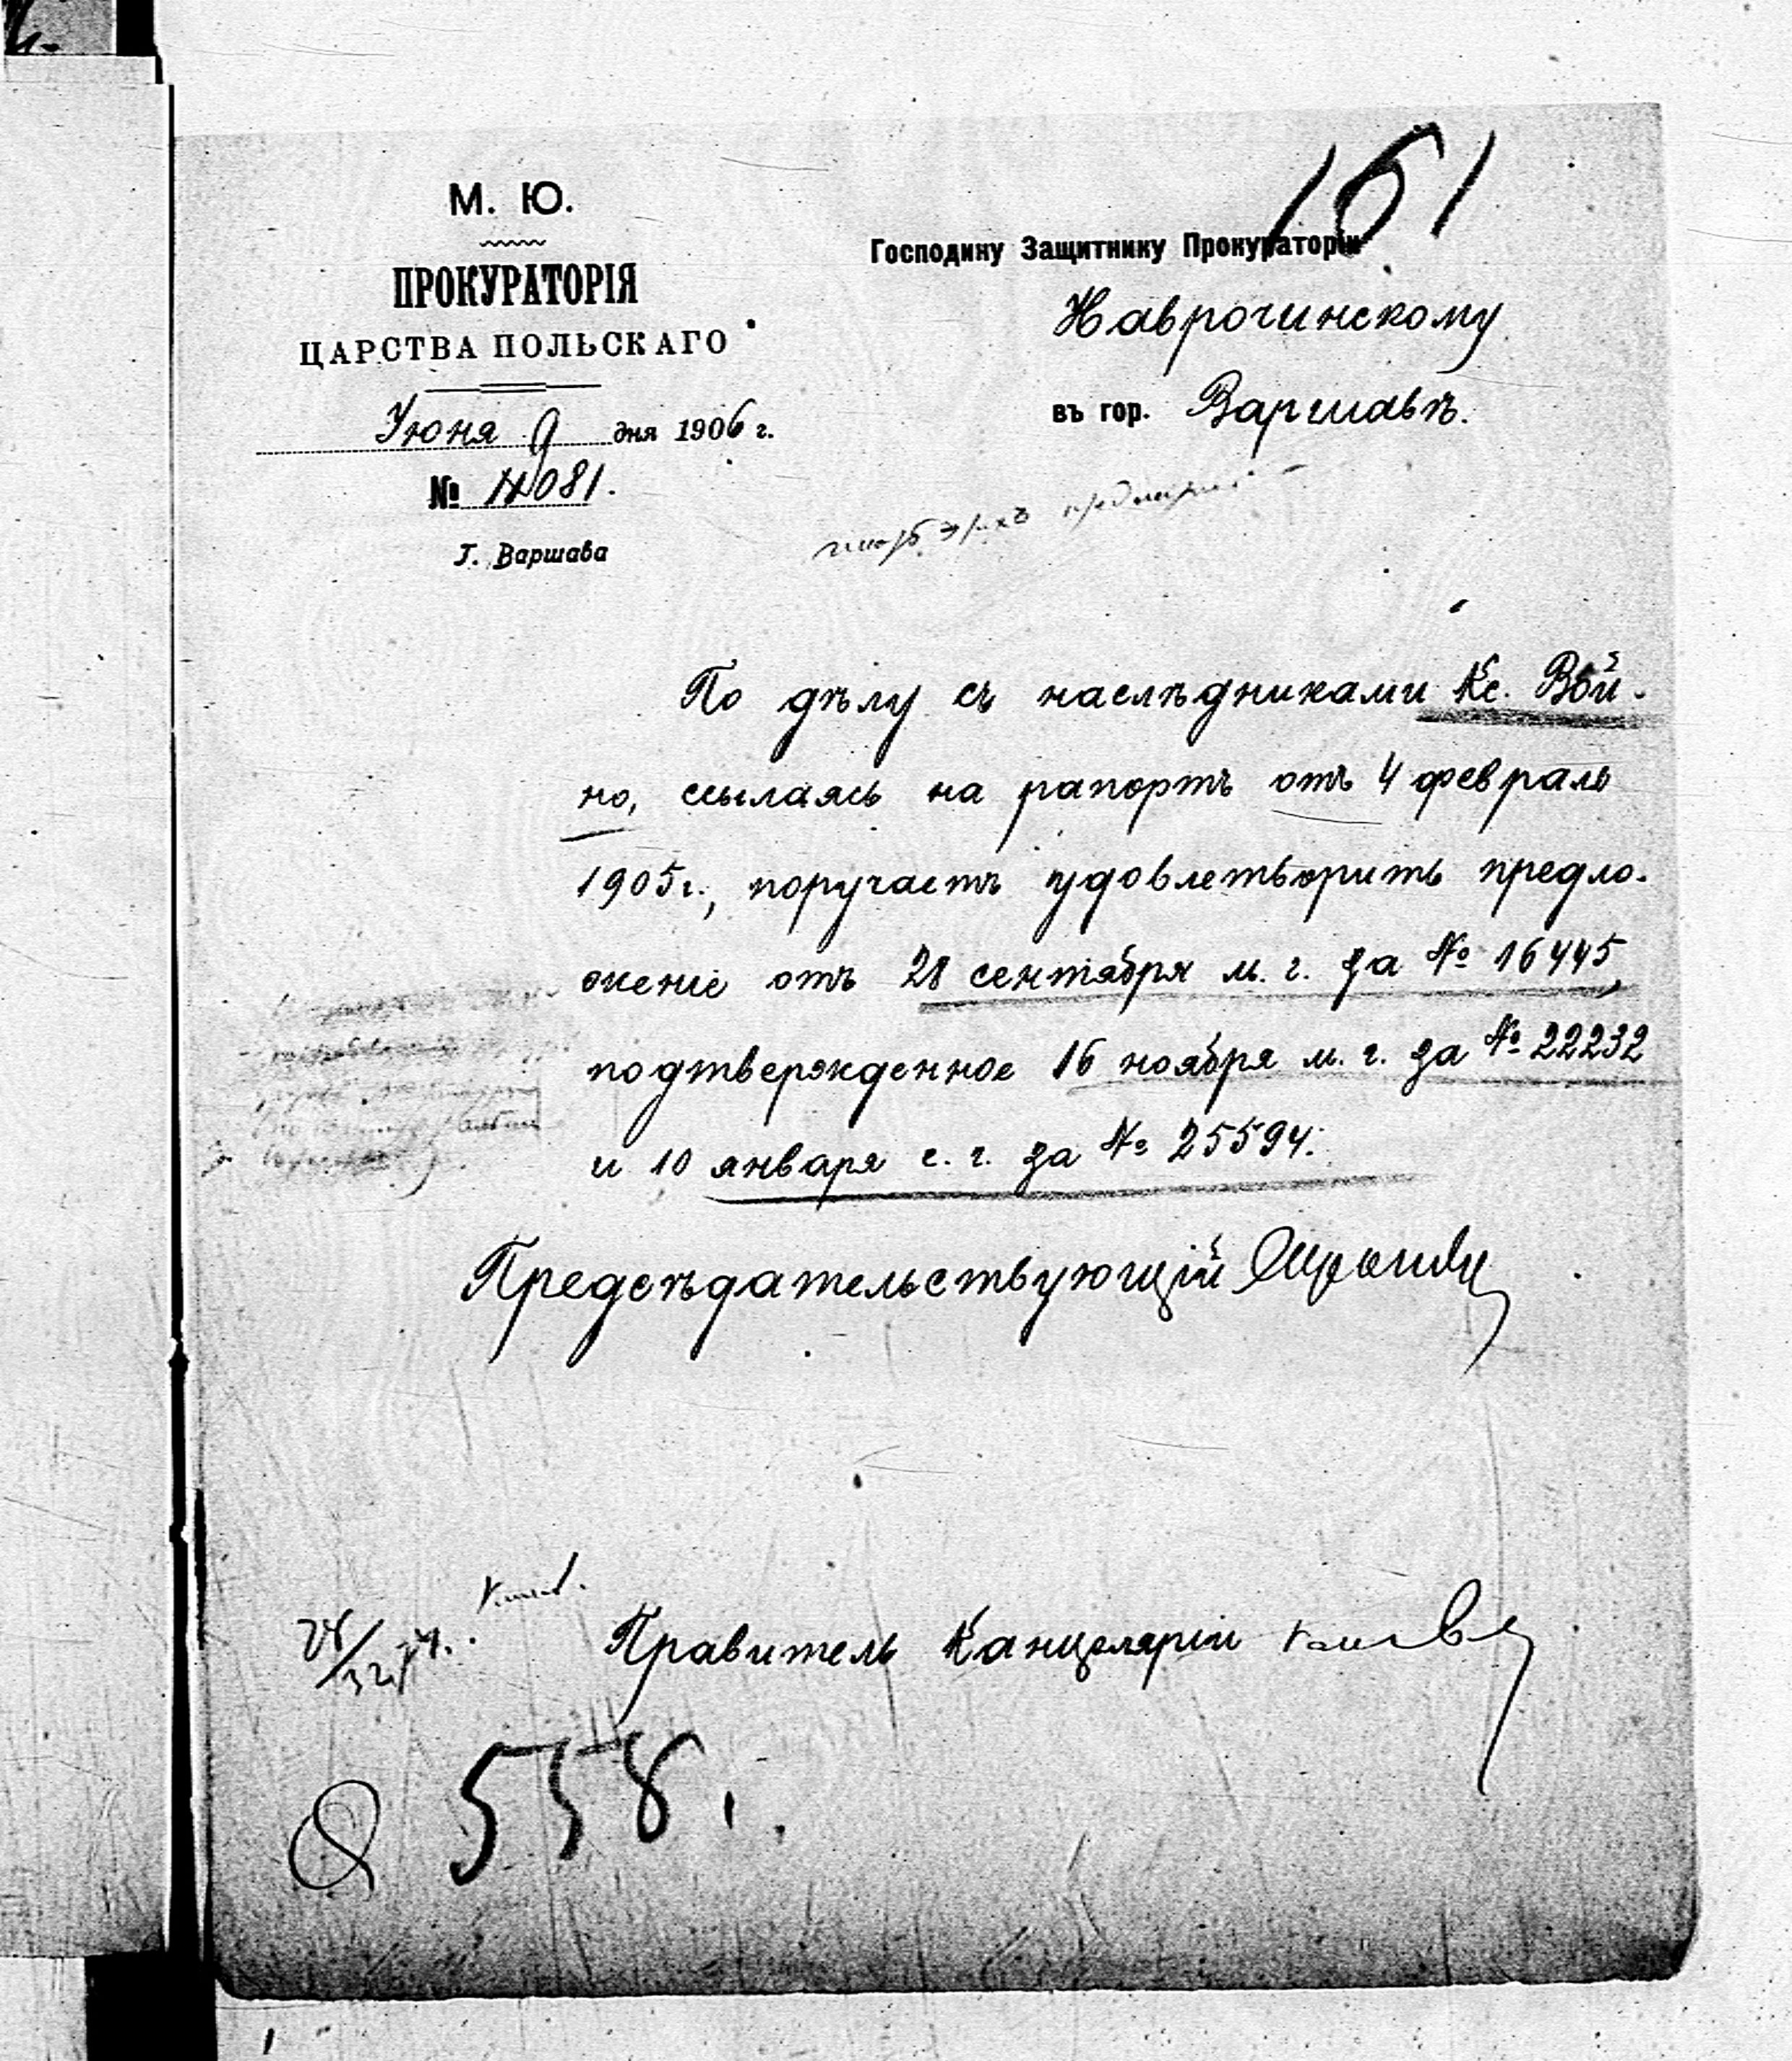 161
М. Ю.
ПРОКУРАТОРІЯ
ЦАРСТВА ПОЛЬСКАГО
Іюня 9 дня 1906 г.
№ 4081.
Г. Варшава
Господину Защитнику Прокураторіи
Наврочинскому
въ гор. Варшавѣ.
По дѣлу съ наслѣдниками Кс. Вой-
но, ссылаясь на рапортъ отъ 4 февраля
1905 г., поручаетъ удовлетворить предло-
женіе отъ 28 сентября м. г. за № 16445,
подтвержденное 16 ноября м. г. за № 22232
и 10 января с. г. за № 25594.
Предсѣдательствующій
Правитель Канцеляріи
558.